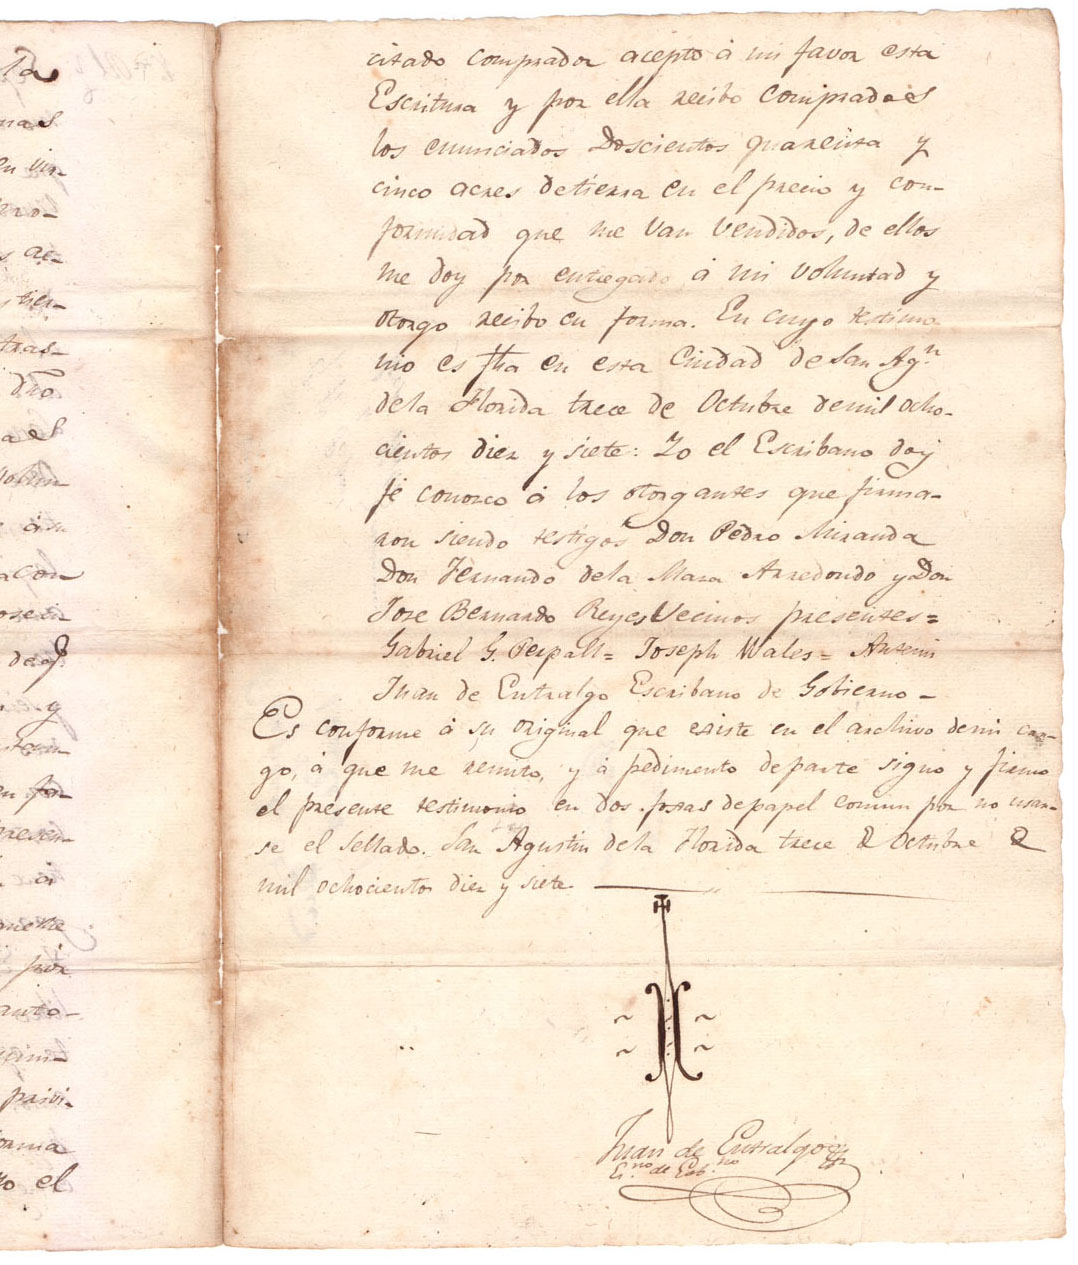 la
nas
en vir-
ero-
s ac-
s tier-
tras-
dho
a el
a con
y
en for-
presen-
a
por
anto-
privi-
forma
yo el
citado comprador acepto á mi favor esta
Escritura y por ella recibo comprados
los enunciados Doscientos quarenta y
cinco acres de tierra en el precio y con-
formidad que me van vendidos, de ellos
me doy por entregado á mi voluntad y
otorgo recibo en forma. En cuyo testimo
nio es fha en esta Ciudad de San Ag.n
de la Florida trece de Octubre de mil ocho-
cientos diez y siete: Yo el Escribano doy
fé conozco á los otorgantes que firma-
ron siendo testigos Don Pedro Miranda
Don Fernando de la Maza Arredondo y Don
Jose Bernardo Reyes Vecinos presentes=
Gabriel G. Perpall= Joseph Wales= Antemi
Juan de Entralgo Escribano de Gobierno-
Es conforme á su original que existe en el archivo de mi car-
go, á que me remito, y á pedimento de parte signo y firmo
el presente testimonio en dos fojas de papel comun por no usar-
se el Sellado. San Agustin de la Florida trece de Octubre de
mil ochocientos diez y siete
Juan de Entralgo
Es.no de Gob.no